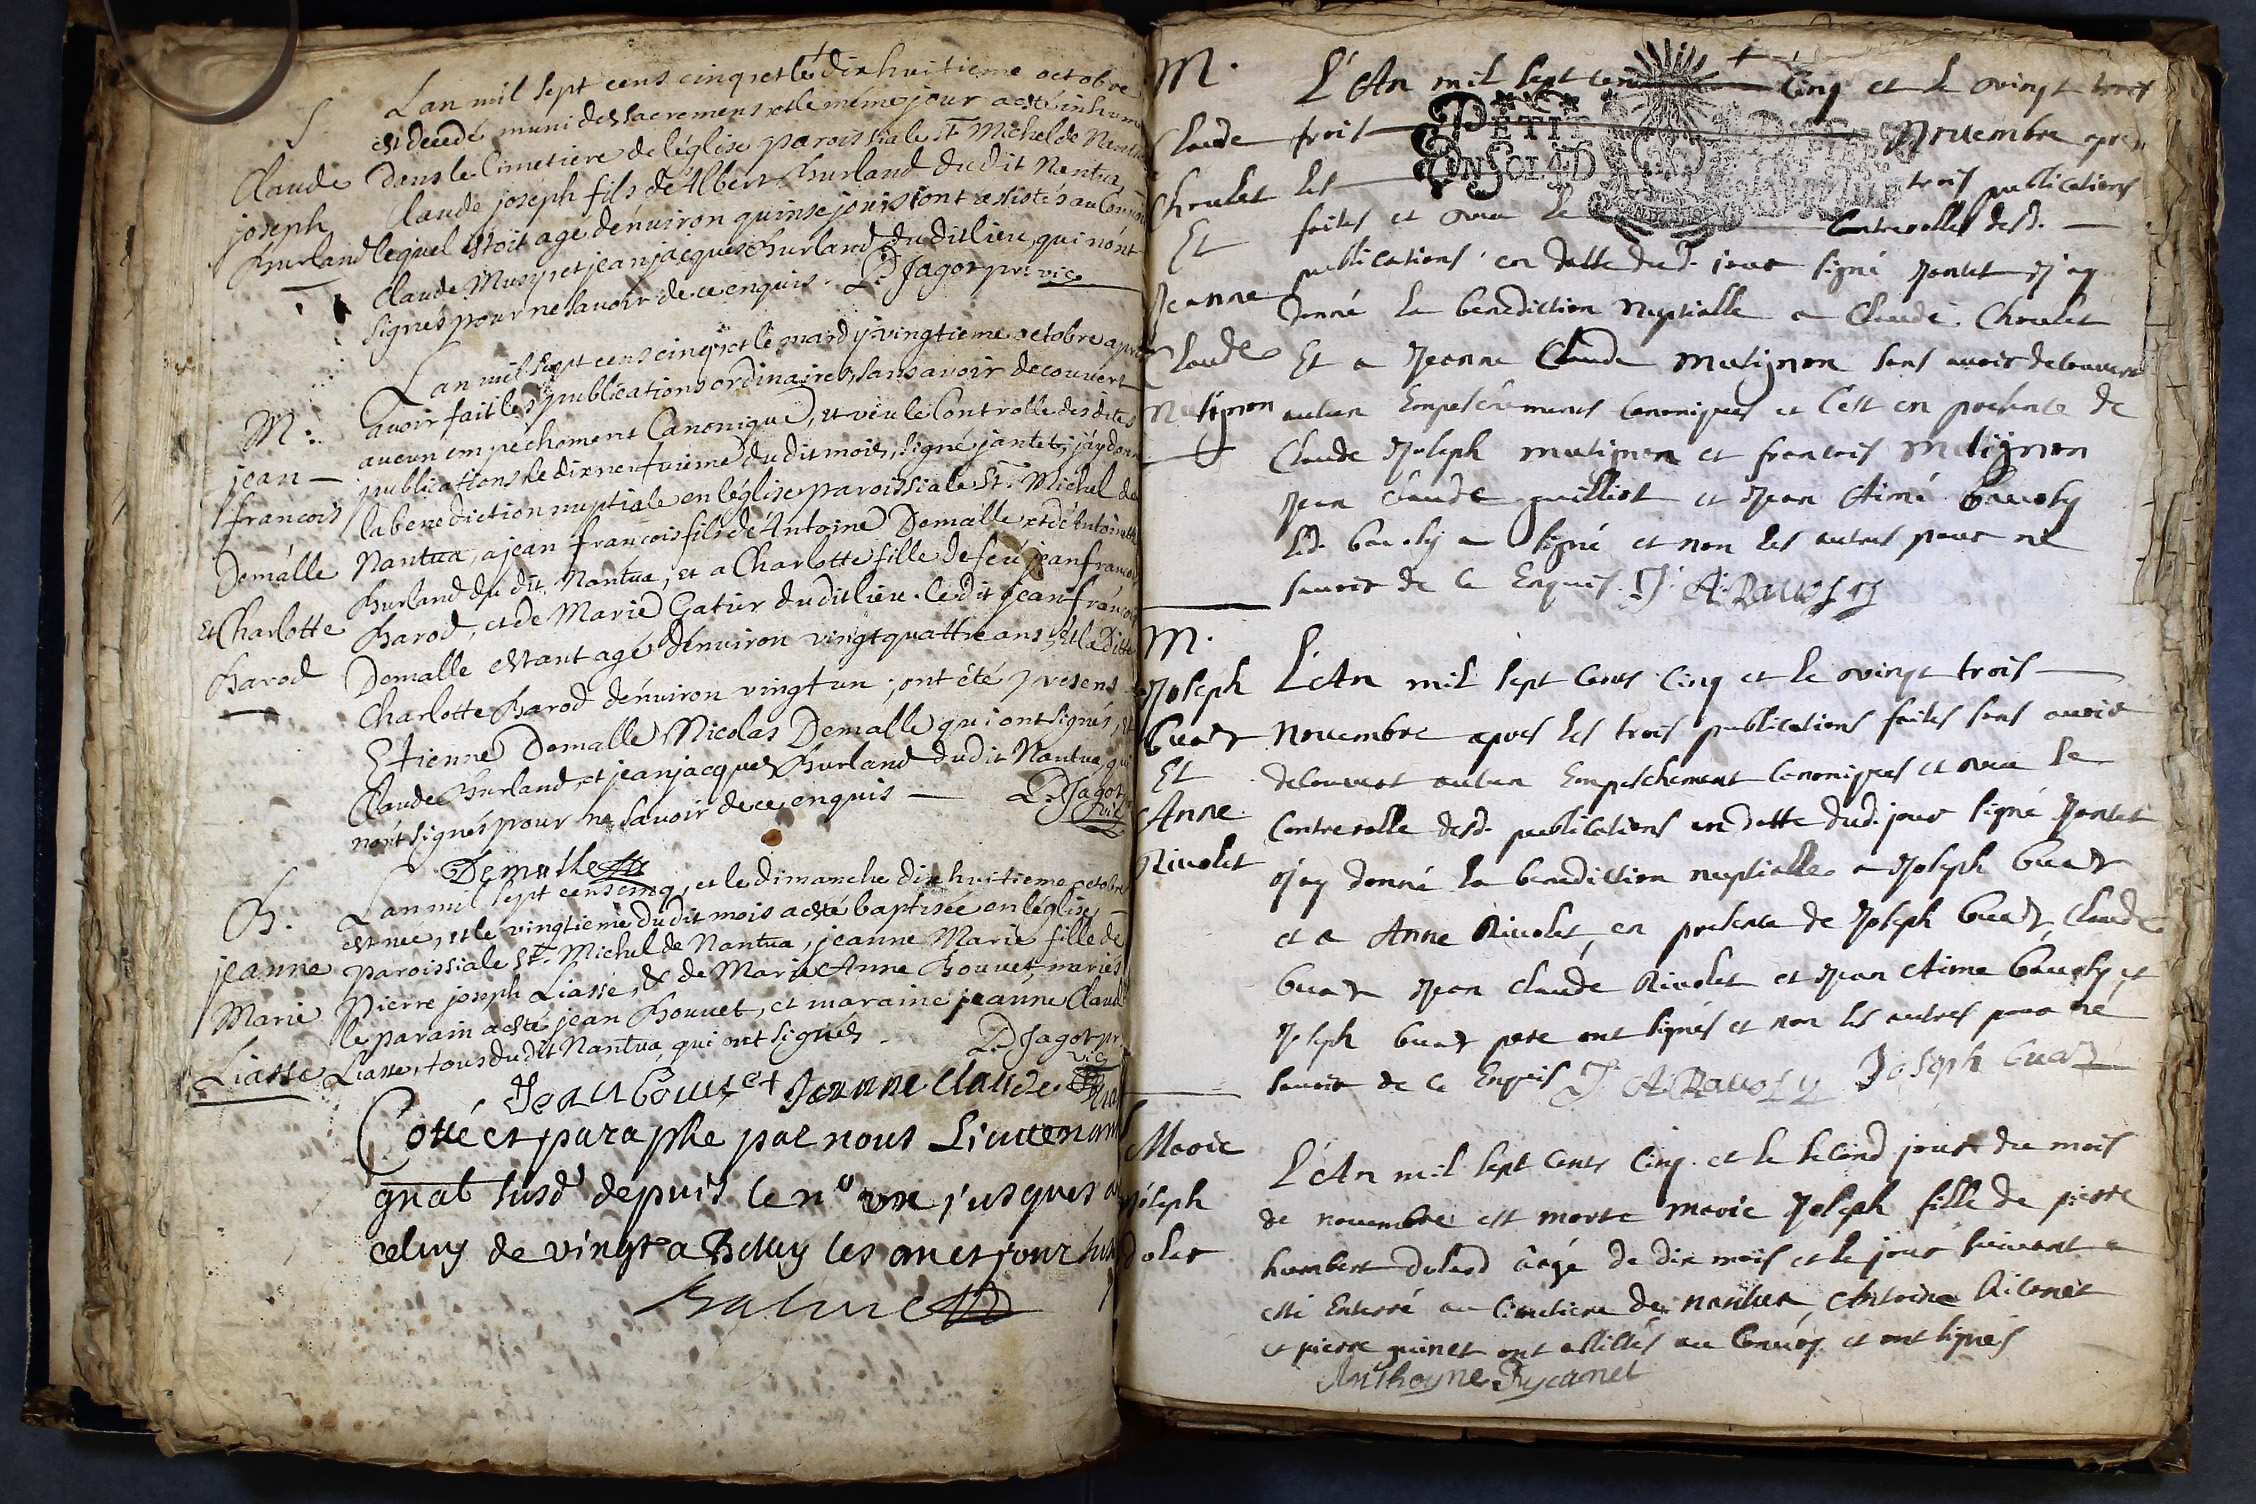 S.
Claude
joseph
Burland
Lan mil sept cens cinq, et le dix huitieme octobre
est decedé muni des sacremens et le méme jour a esté inhumé
Dans le Cimetiere de l'église paroissiale St. Michel de Nantua
Claude joseph fils de Albert Burland du dit Nantua
lequel estoit agé dénuiron quinse jours, ont assistés au Conuoy
Claude Musy et jean jacques Burland du dit lieu, qui nónt
signes pour ne sauoir de ce enquis. P. Jagot pr. vic
M.
jean
francois
Demálle
Et Charlotte
Barod
Lan mil sept cens cinq, et le mardy vingtieme octobre apres
auoir fait les publications ordinaires, sans auoir decouuert
aucun empechement Canonique, et veu le Controlle des dites
publications le dixneufuieme du dit mois, signé jantet, j'ay donné
la benediction nuptiale en léglise paroissiale St. Michel de
Nantua, a jean francois fils de Antoine Demalle et de Antoinette
Burland du dit Nantua, et a Charlotte fille de feu jean francois
Barod, et de Marie Gatier du dit lieu. le dit jean francois
Demalle estant agé dénuiron vingt quattre ans, Et la ditte
Charlotte Barod dénuiron vingt un, ont été presens
Etienne Demalle, Nicolas Demalle qui ont signés, et
Claude Burland, et jean jacques Burland du dit Nantua, qui
nónt signés pour ne sauoir de ce enquis — P. Jagot
vic
Demalle
B.
jeanne
Marie
Liasse
Lan mil sept cens cinq, et le dimanche dix huitieme octobre
est née, et le vingtieme du dit mois a esté baptisée en léglise
paroissiale St. Michel de Nantua, jeanne Marie fille de
Pierre joseph Liasse, & de Marie Anne Bouuet, mariés
le parain a esté jean Bouuet, et maraine jeánne Claude
Liasse, tous du dit Nantua, qui ont signés. P. Jagot pr.
vic
Jean Bouuet Jeanne Claude
Cotté et paraphé par nous Lieutenant
gnal susd. depuis le n.º vn jusques a
celuy de vingt a Belley les an et jour susd
M.
Claude
Choulet
Et
Jeanne
Claude
Mutignon
PETIT
L'An mil sept cens Cinq et le vingt trois
trois Nouembre apres
les trois publications
faites et veu le Contrerolle desd.
publications en datte dud. jour signé Jantet J'ay
donné la benediction nuptialle a Claude Choulet
Et a Jeanne Claude mutignon sans auoir decouuert
aucun Empeschements Canoniques et C'est en presence de
Claude Joseph mutignon et francois Mutignon
Jean Claude guilliot et Jean Aimé Bauoly
led. Bauoly a signé et non les autres pour ne
sauoir de Ce Enquis.
M.
Joseph
Et
Anne
Riuolet
L'An mil sept Cents Cinq et le vingt trois
Nouembre apres les trois publications faites sans auoir
decouuert aucun Empeschement Canoniques et veu le
Contrerolle desd. publications en datte dud. jour signé Jantet
j'ay donné la benediction nuptialle a Joseph
et a Anne Riuolet, en presence de Joseph Claude
Jean Claude Riuolet et Jean Aime Bauoly, et
Joseph pere ont signés et non les autres pour ne
sauoir de Ce Enquis Joseph
Marie
Joseph
L'An mil sept Cents Cinq et le second jour du mois
de nouembre est morte marie Joseph fille de pierre
humbert âagé de dix mois et le jour suiuant a
esté Enterré au Cimetiere de nantua, Anthoine Ricanet
et pierre guinet ont assistés au Conuoy et ont signés
Anthoyne Rycanet